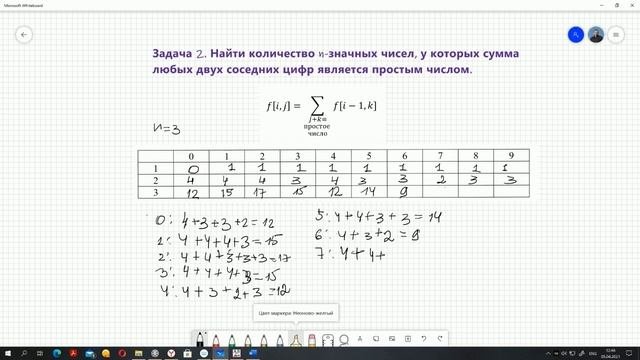 Microsoft Whiteboard
Задача 2. Найти количество n-значных чисел, у которых сумма
любых двух соседних цифр является простым числом.
f[i,j] = ∑ f[i − 1,k]
j+k=
простое
число
n=3
0 1 2 3 4 5 6 7 8 9
1 0 1 1 1 1 1 1 1 1 1
2 4 4 4 3 4 3 3 2 3 3
3 12 15 17 15 12 14 9
0: 4+3+3+2=12
1: 4+4+4+3=15
2: 4+4+3+3+3=17
3: 4+4+4+3=15
4: 4+3+2+3=12
5: 4+4+3+3=14
6: 4+3+2=9
7: 4+4+
Цвет маркера: Неоново-желтый
12:44
05.04.2021